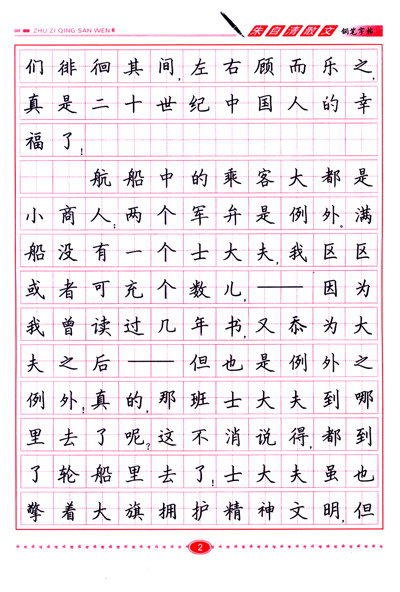 ZHU ZI QING SAN WEN
朱自清散文 钢笔字帖
们徘徊其间,左右顾而乐之,
真是二十世纪中国人的幸
福了!
航船中的乘客大都是
小商人;两个军弁是例外。满
船没有一个士大夫,我区区
或者可充个数儿,——因为
我曾读过几年书,又忝为大
夫之后——但也是例外之
例外!真的,那班士大夫到哪
里去了呢?这不消说得,都到
了轮船里去了!士大夫虽也
擎着大旗拥护精神文明,但
2